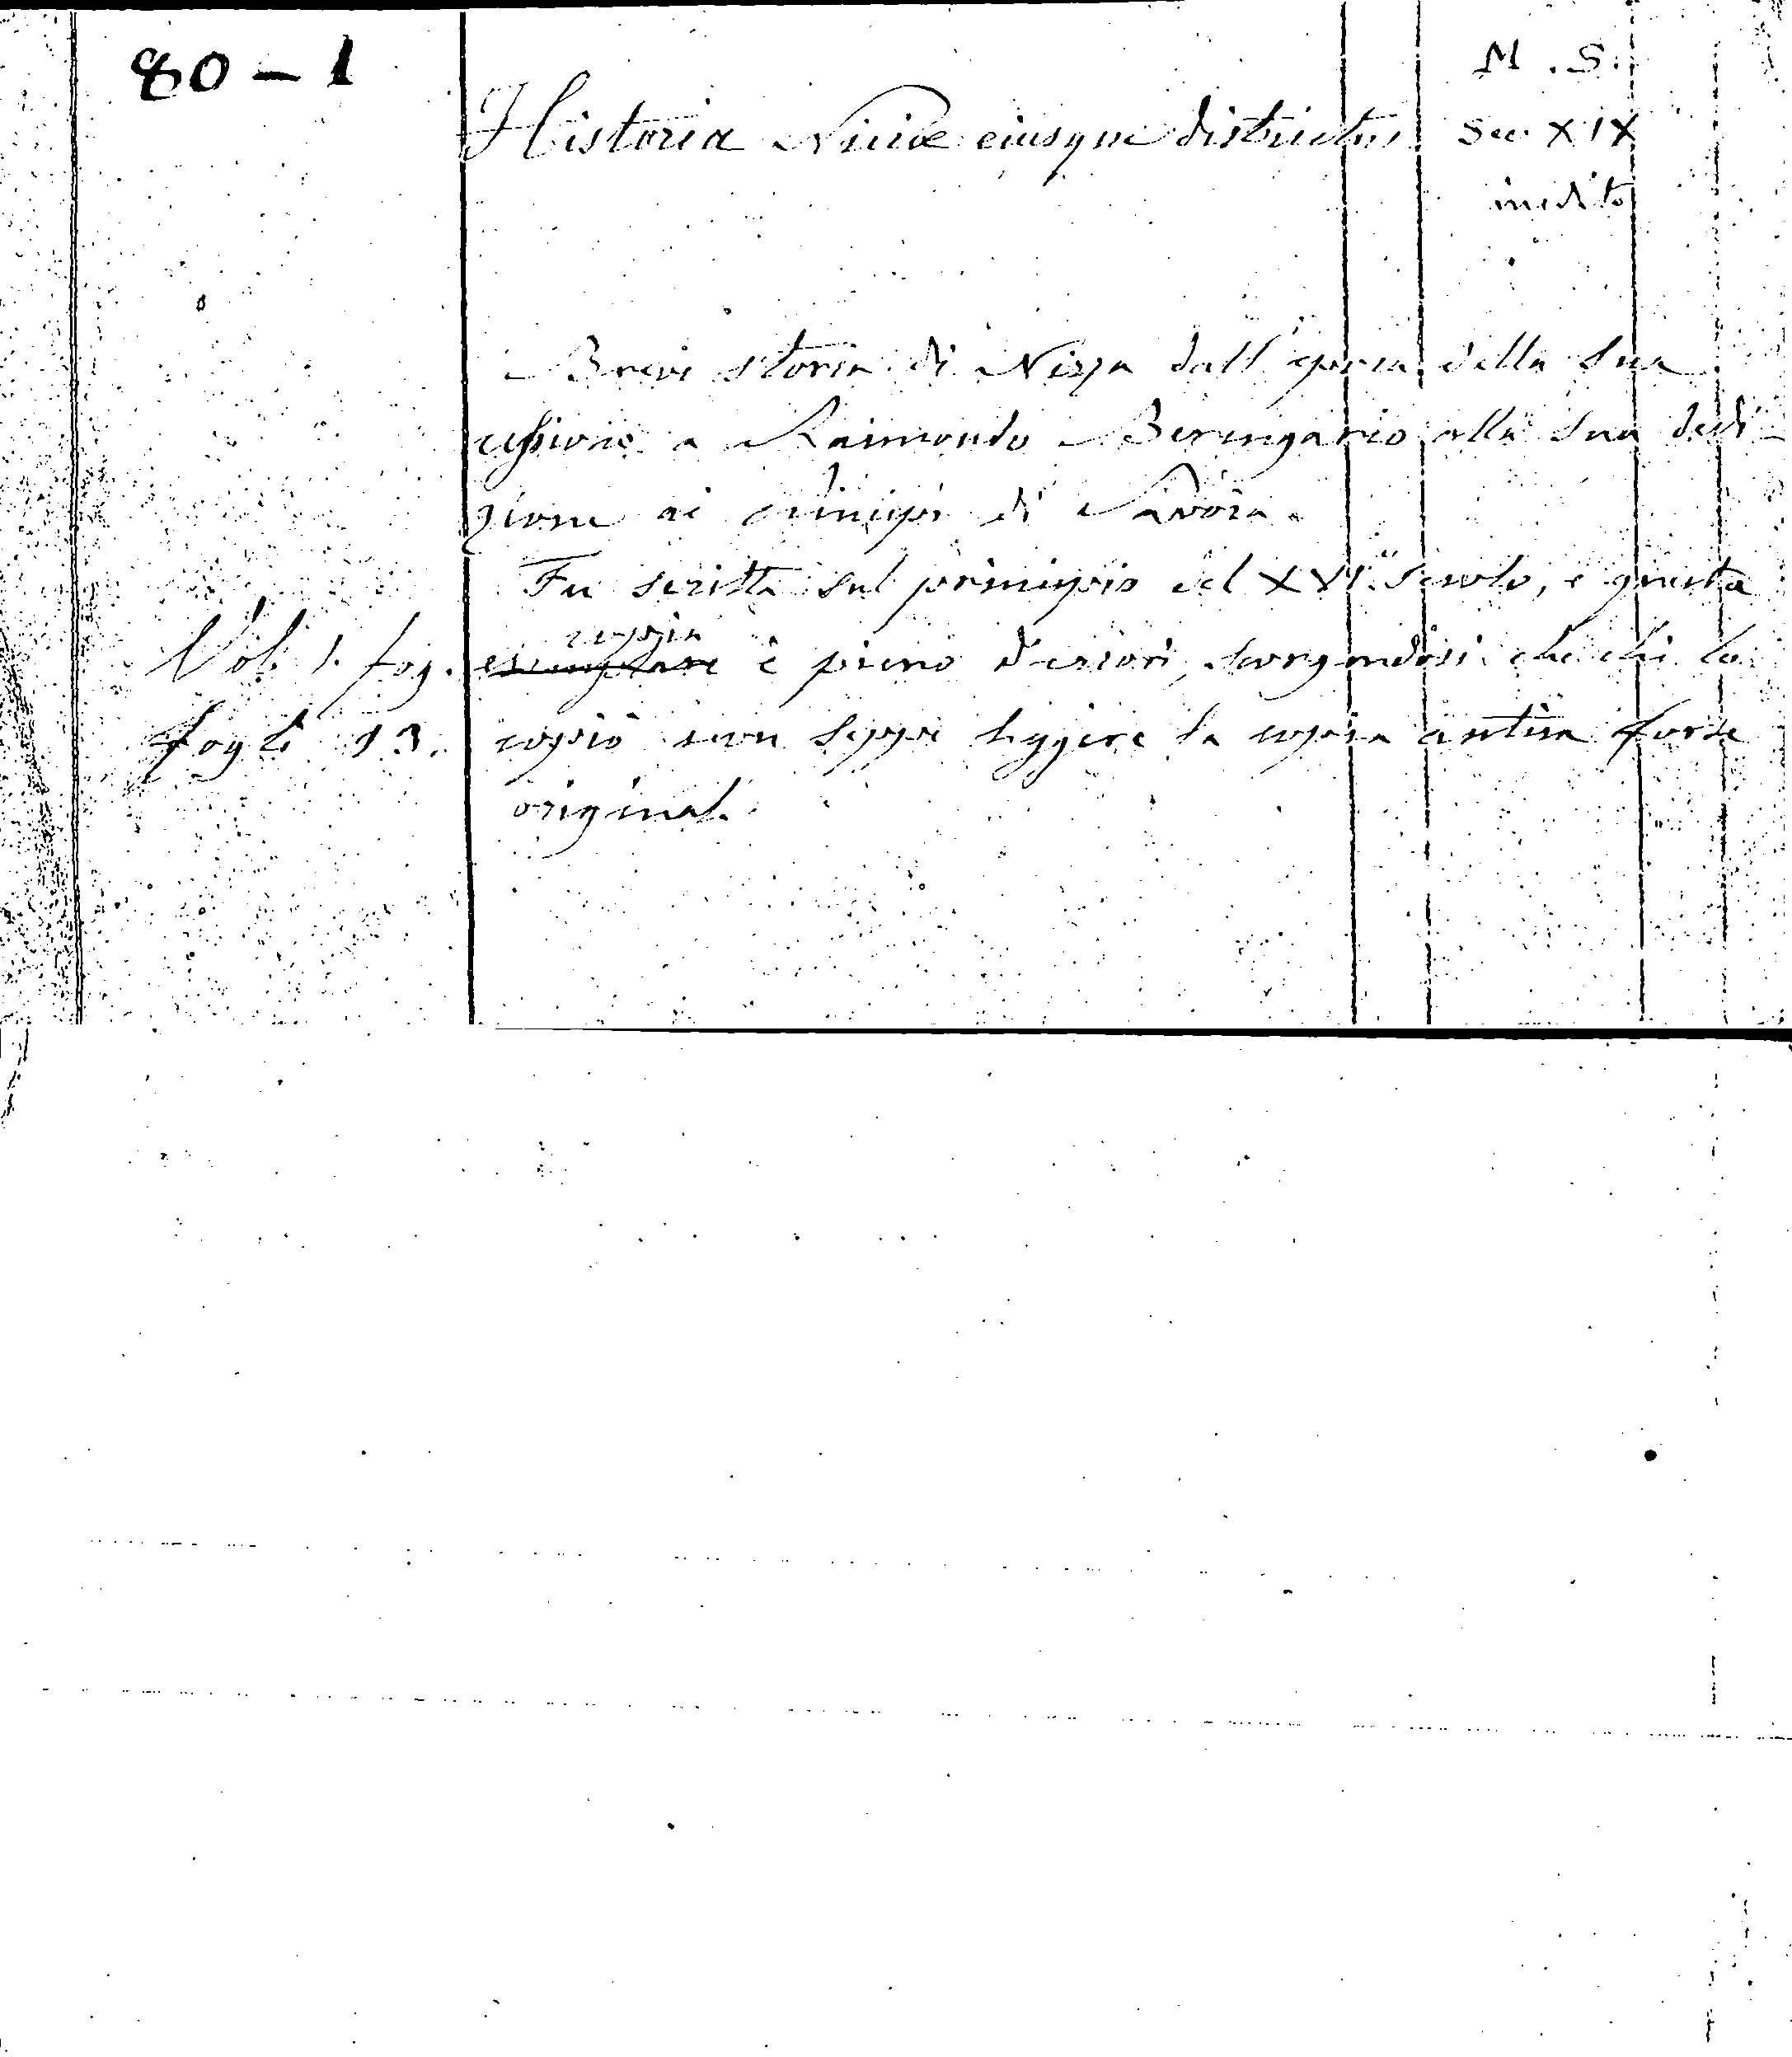 80 - 1
M. S.
Historia Niciae eiusque districtus
Sec. XIX
inedito
Breve storia di Nizza dall'epoca della sua
cessione a Raimondo Berengario alla sua dedi-
zione ai principi di Savoia.
Fu scritta sul principio del XVI secolo, e questa
copia
Vol. 1. fog. esemplare è pieno d'errori, scorgendosi che chi la
fogli 13. copiò non seppe leggere la copia antica forse
original.